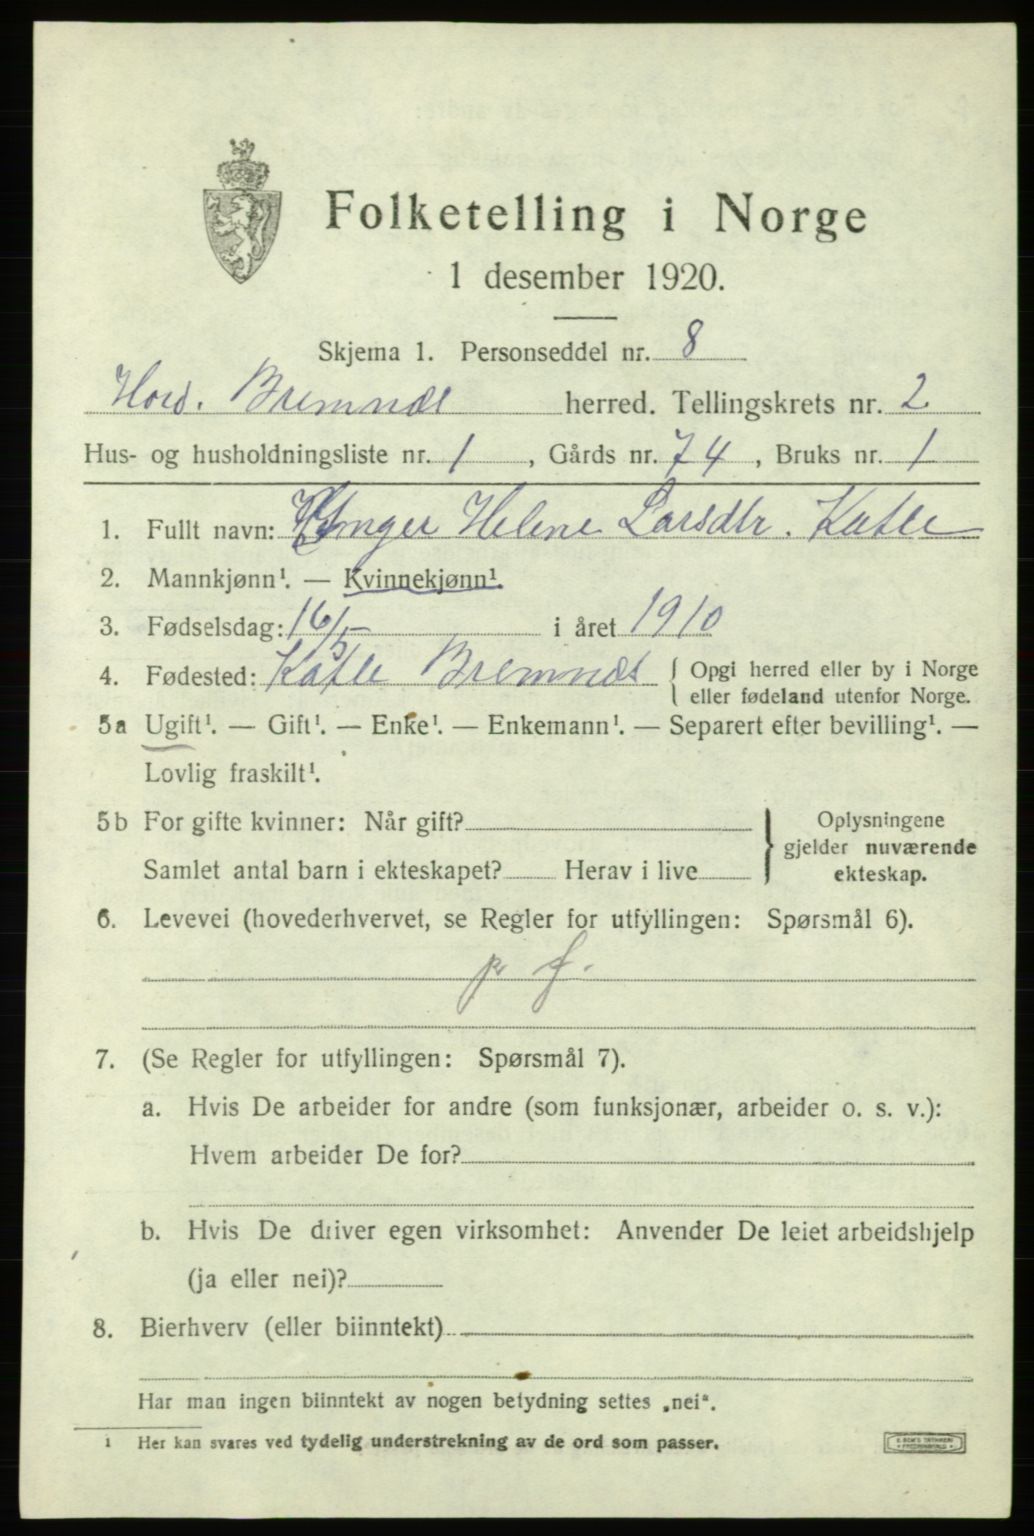 Folketelling i Norge
1 desember 1920.
Skjema 1. Personseddel nr. 8
Hord. Bremnæs herred. Tellingskrets nr. 2
Hus- og husholdningsliste nr. 1, Gårds nr. 74, Bruks nr. 1
1. Fullt navn: Inger Helene Larsdtr. Katle
2. Mannkjønn¹. — Kvinnekjønn¹.
3. Fødselsdag: 16/5 i året 1910
4. Fødested: Katle Bremnæs { Opgi herred eller by i Norge
eller fødeland utenfor Norge.
5a Ugift¹. — Gift¹. — Enke¹. — Enkemann¹. — Separert efter bevilling¹. —
Lovlig fraskilt¹.
5b For gifte kvinner: Når gift?
Samlet antal barn i ekteskapet? Herav i live
} Oplysningene
gjelder nuværende
ekteskap.
6. Levevei (hovederhvervet, se Regler for utfyllingen: Spørsmål 6).
f.
7. (Se Regler for utfyllingen: Spørsmål 7).
a. Hvis De arbeider for andre (som funksjonær, arbeider o. s. v.):
Hvem arbeider De for?
b. Hvis De driver egen virksomhet: Anvender De leiet arbeidshjelp
(ja eller nei)?
8. Bierhverv (eller biinntekt)
Har man ingen biinntekt av nogen betydning settes „nei“.
¹ Her kan svares ved tydelig understrekning av de ord som passer.